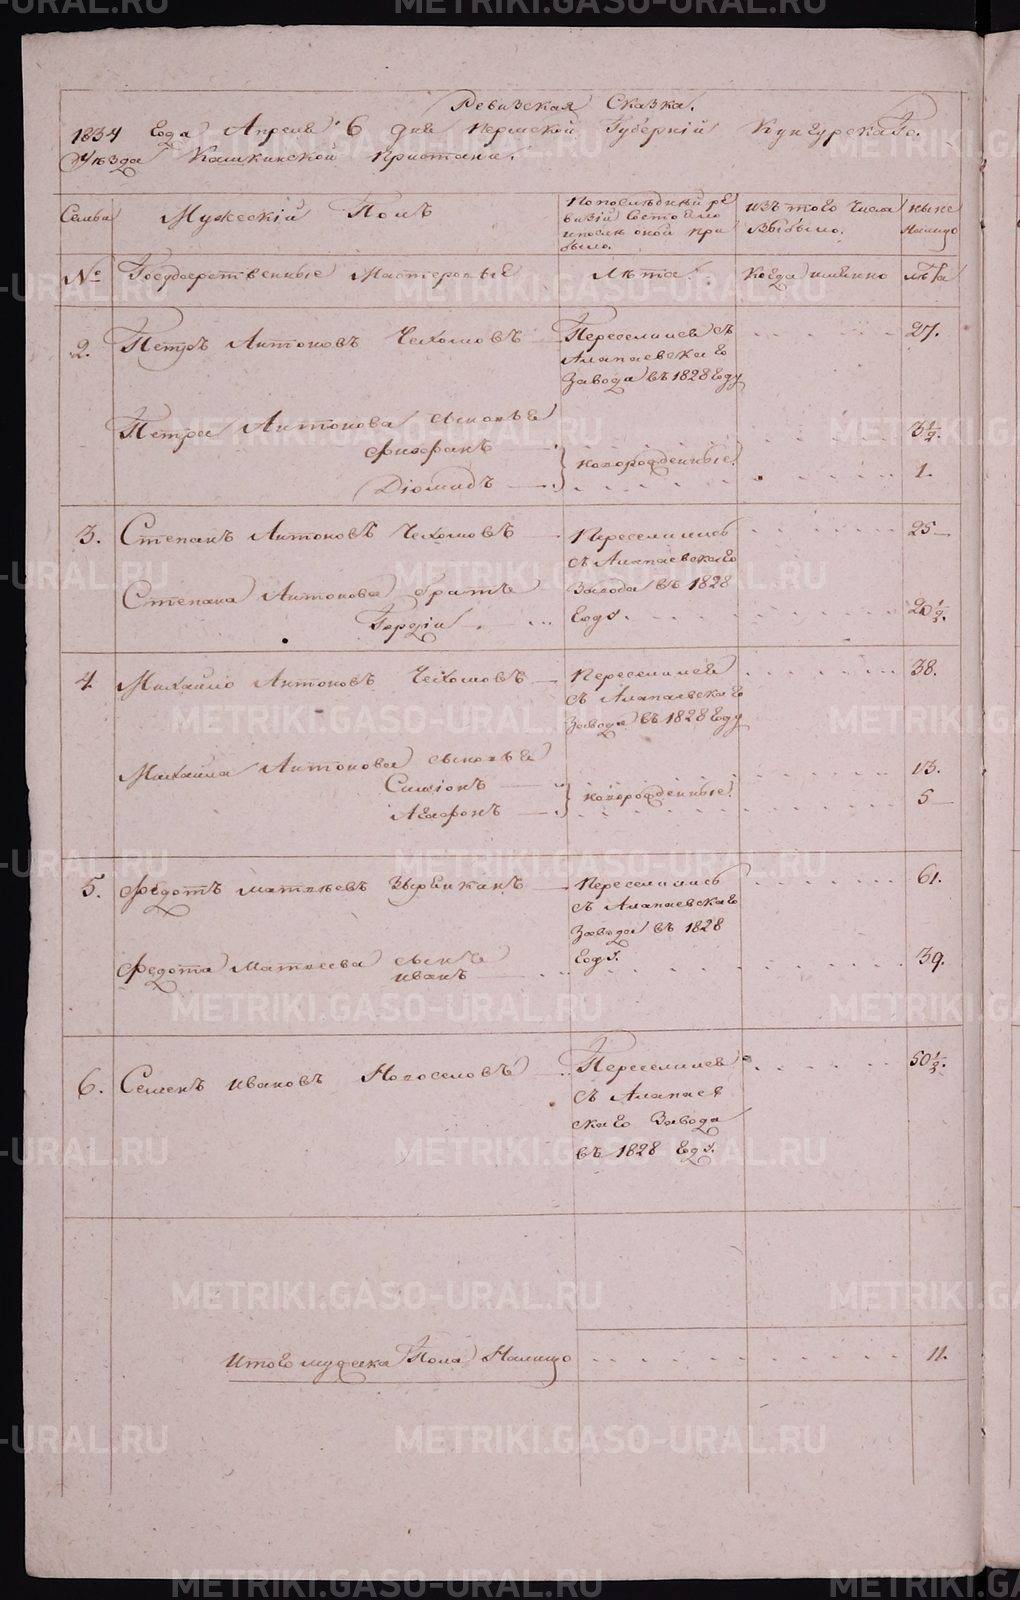 Ревизская Сказка.
1834 Года Апреля 6 дня Пермской Губерніи Кунгурскаго
Уѣзда Кашкинской Пристани.
Семьи
Мужескій Полъ
По послѣдней ре
визіи состояло
и послѣ оной при
было.
Изъ того числа
выбыло.
Нынѣ
налицо
№
Государственные Мастеровые
Лѣта.
Когда именно
лѣта
2. Петръ Антоновъ Чехомовъ
Переселился съ
Алапаевскаго
Завода въ 1828 Году
27.
Петра Антонова сыновья
Филофанъ
3 1/2.
Діомидъ
новорожденные.
1.
3. Степанъ Антоновъ Чехомовъ
Переселились
съ Алапаевскаго
Завода въ 1828
Году.
25
Степана Антонова братъ
Гордій
20 1/2.
4 Михайло Антоновъ Чехомовъ
Переселился
съ Алапаевскаго
Завода въ 1828 Году
38.
Михаила Антонова сыновья
Симіонъ
13.
Агафонъ
новорожденные.
5
5. Федотъ Матвѣевъ Зырянканъ
Переселились
съ Алапаевскаго
Завода въ 1828
Году.
61.
Федота Матвеева сынъ
Иванъ
39.
6. Семенъ Ивановъ Новоселовъ
Переселился
съ Алапаев
скаго Завода
въ 1828 Году.
50 1/2.
Итого мужеска Пола Налицо
11.
METRIKI.GASO-URAL.RU